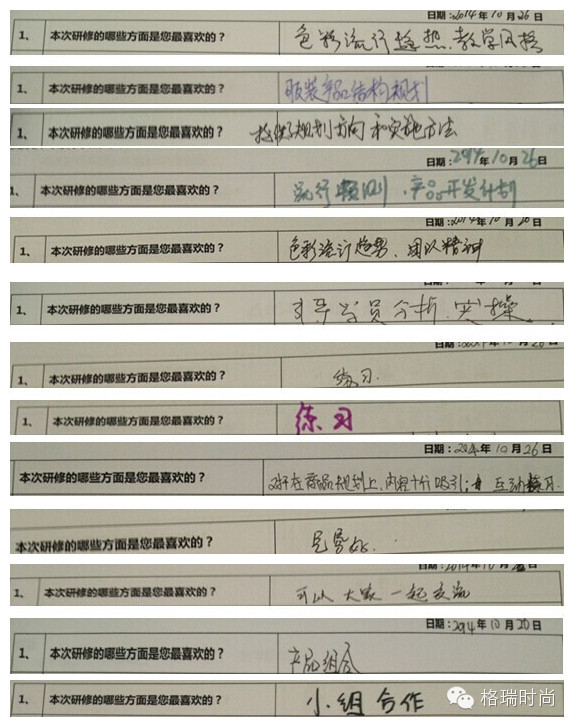 日期:2014年10月26日
1、 本次研修的哪些方面是您最喜欢的？ 色彩流行趋势.教学风格
1、 本次研修的哪些方面是您最喜欢的？ 服装产品结构规划
1、 本次研修的哪些方面是您最喜欢的？ 提供了规划方向和实施方法
日期:2014年10月26日
1、 本次研修的哪些方面是您最喜欢的？ 流行 规则 、产品开发计划
日期:2014年10月26日
1、 本次研修的哪些方面是您最喜欢的？ 色彩流行趋势、团队精神
1、 本次研修的哪些方面是您最喜欢的？ 引导学员分析、实操
1、 本次研修的哪些方面是您最喜欢的？ 练习.
1、 本次研修的哪些方面是您最喜欢的？ 练习
日期:2014年10月26日
本次研修的哪些方面是您最喜欢的？ 在商品规划上,内容十分吸引; 互动练习.
本次研修的哪些方面是您最喜欢的？
1、 本次研修的哪些方面是您最喜欢的？ 可以 大家 一起 交流
日期:2014年10月26日
1、 本次研修的哪些方面是您最喜欢的？ 产品组合
1、 本次研修的哪些方面是您最喜欢的？ 小组合作
格瑞时尚